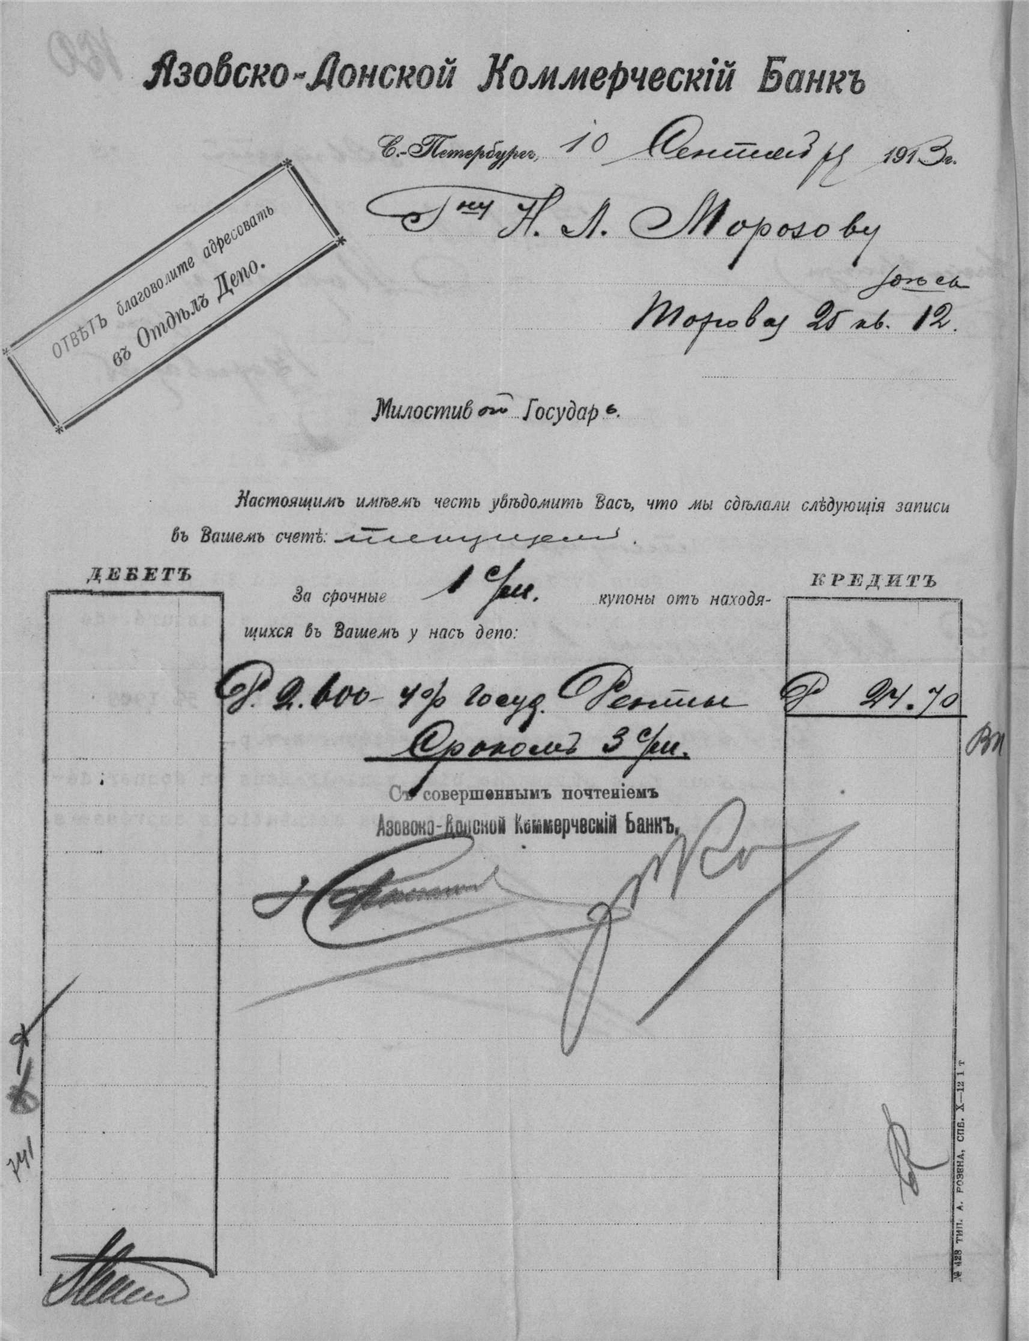 Азовско-Донской Коммерческій Банкъ
С.-Петербургъ, 10 Сентября 1913 г.
ОТВѢТЪ благоволите адресовать
въ Отдѣлъ Депо.
Гну Н. А. Морозову
здѣсь
Торговая 25 кв. 12.
Милостивый Государь.
Настоящимъ имѣемъ честь увѣдомить Васъ, что мы сдѣлали слѣдующія записи
въ Вашемъ счетѣ: текущемъ.
ДЕБЕТЪ
КРЕДИТЪ
За срочные 1 с/м. купоны отъ находя-
щихся въ Вашемъ у насъ депо:
Р. 2.600- 4% Госуд. Ренты Р 24.70
Срокомъ 3 с/м.
Съ совершеннымъ почтеніемъ
Азовско-Донской Коммерческій Банкъ,
741
№ 428 ТИП. А. РОЗЕНА, СПБ. X—12 1 т